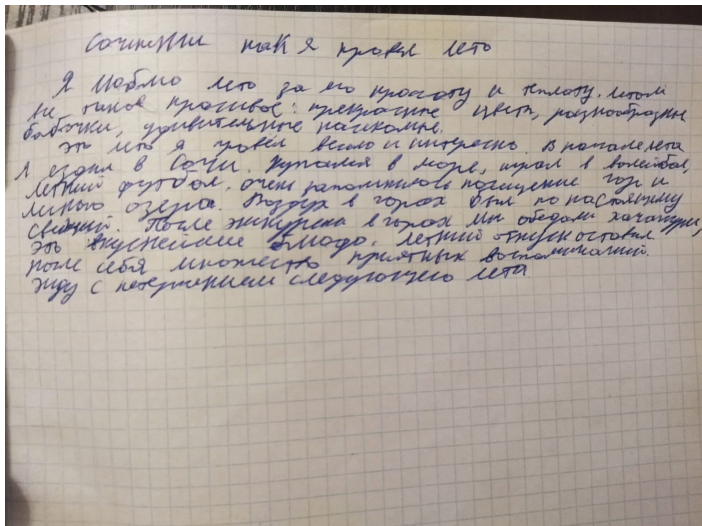 сочинении как я провел лето
Я люблю лето за его красоту и теплоту. летом
все такое красивое: прекрасные цветы, разнообразные
бабочки, удивительные насекомые.
это лето я провёл весело и интересно. В начале лета
я ездил в Сочи. купался в море, играл в волейбол,
летний футбол, очень запомнилось посещение гор и
озера. Воздух в горах был по настоящему
свежий. После экскурсии в горах мы обедали хачапури,
это вкуснейшие блюдо. летний отпуск оставил
после себя множество приятных воспоминаний.
жду с нетерпением следующего лета